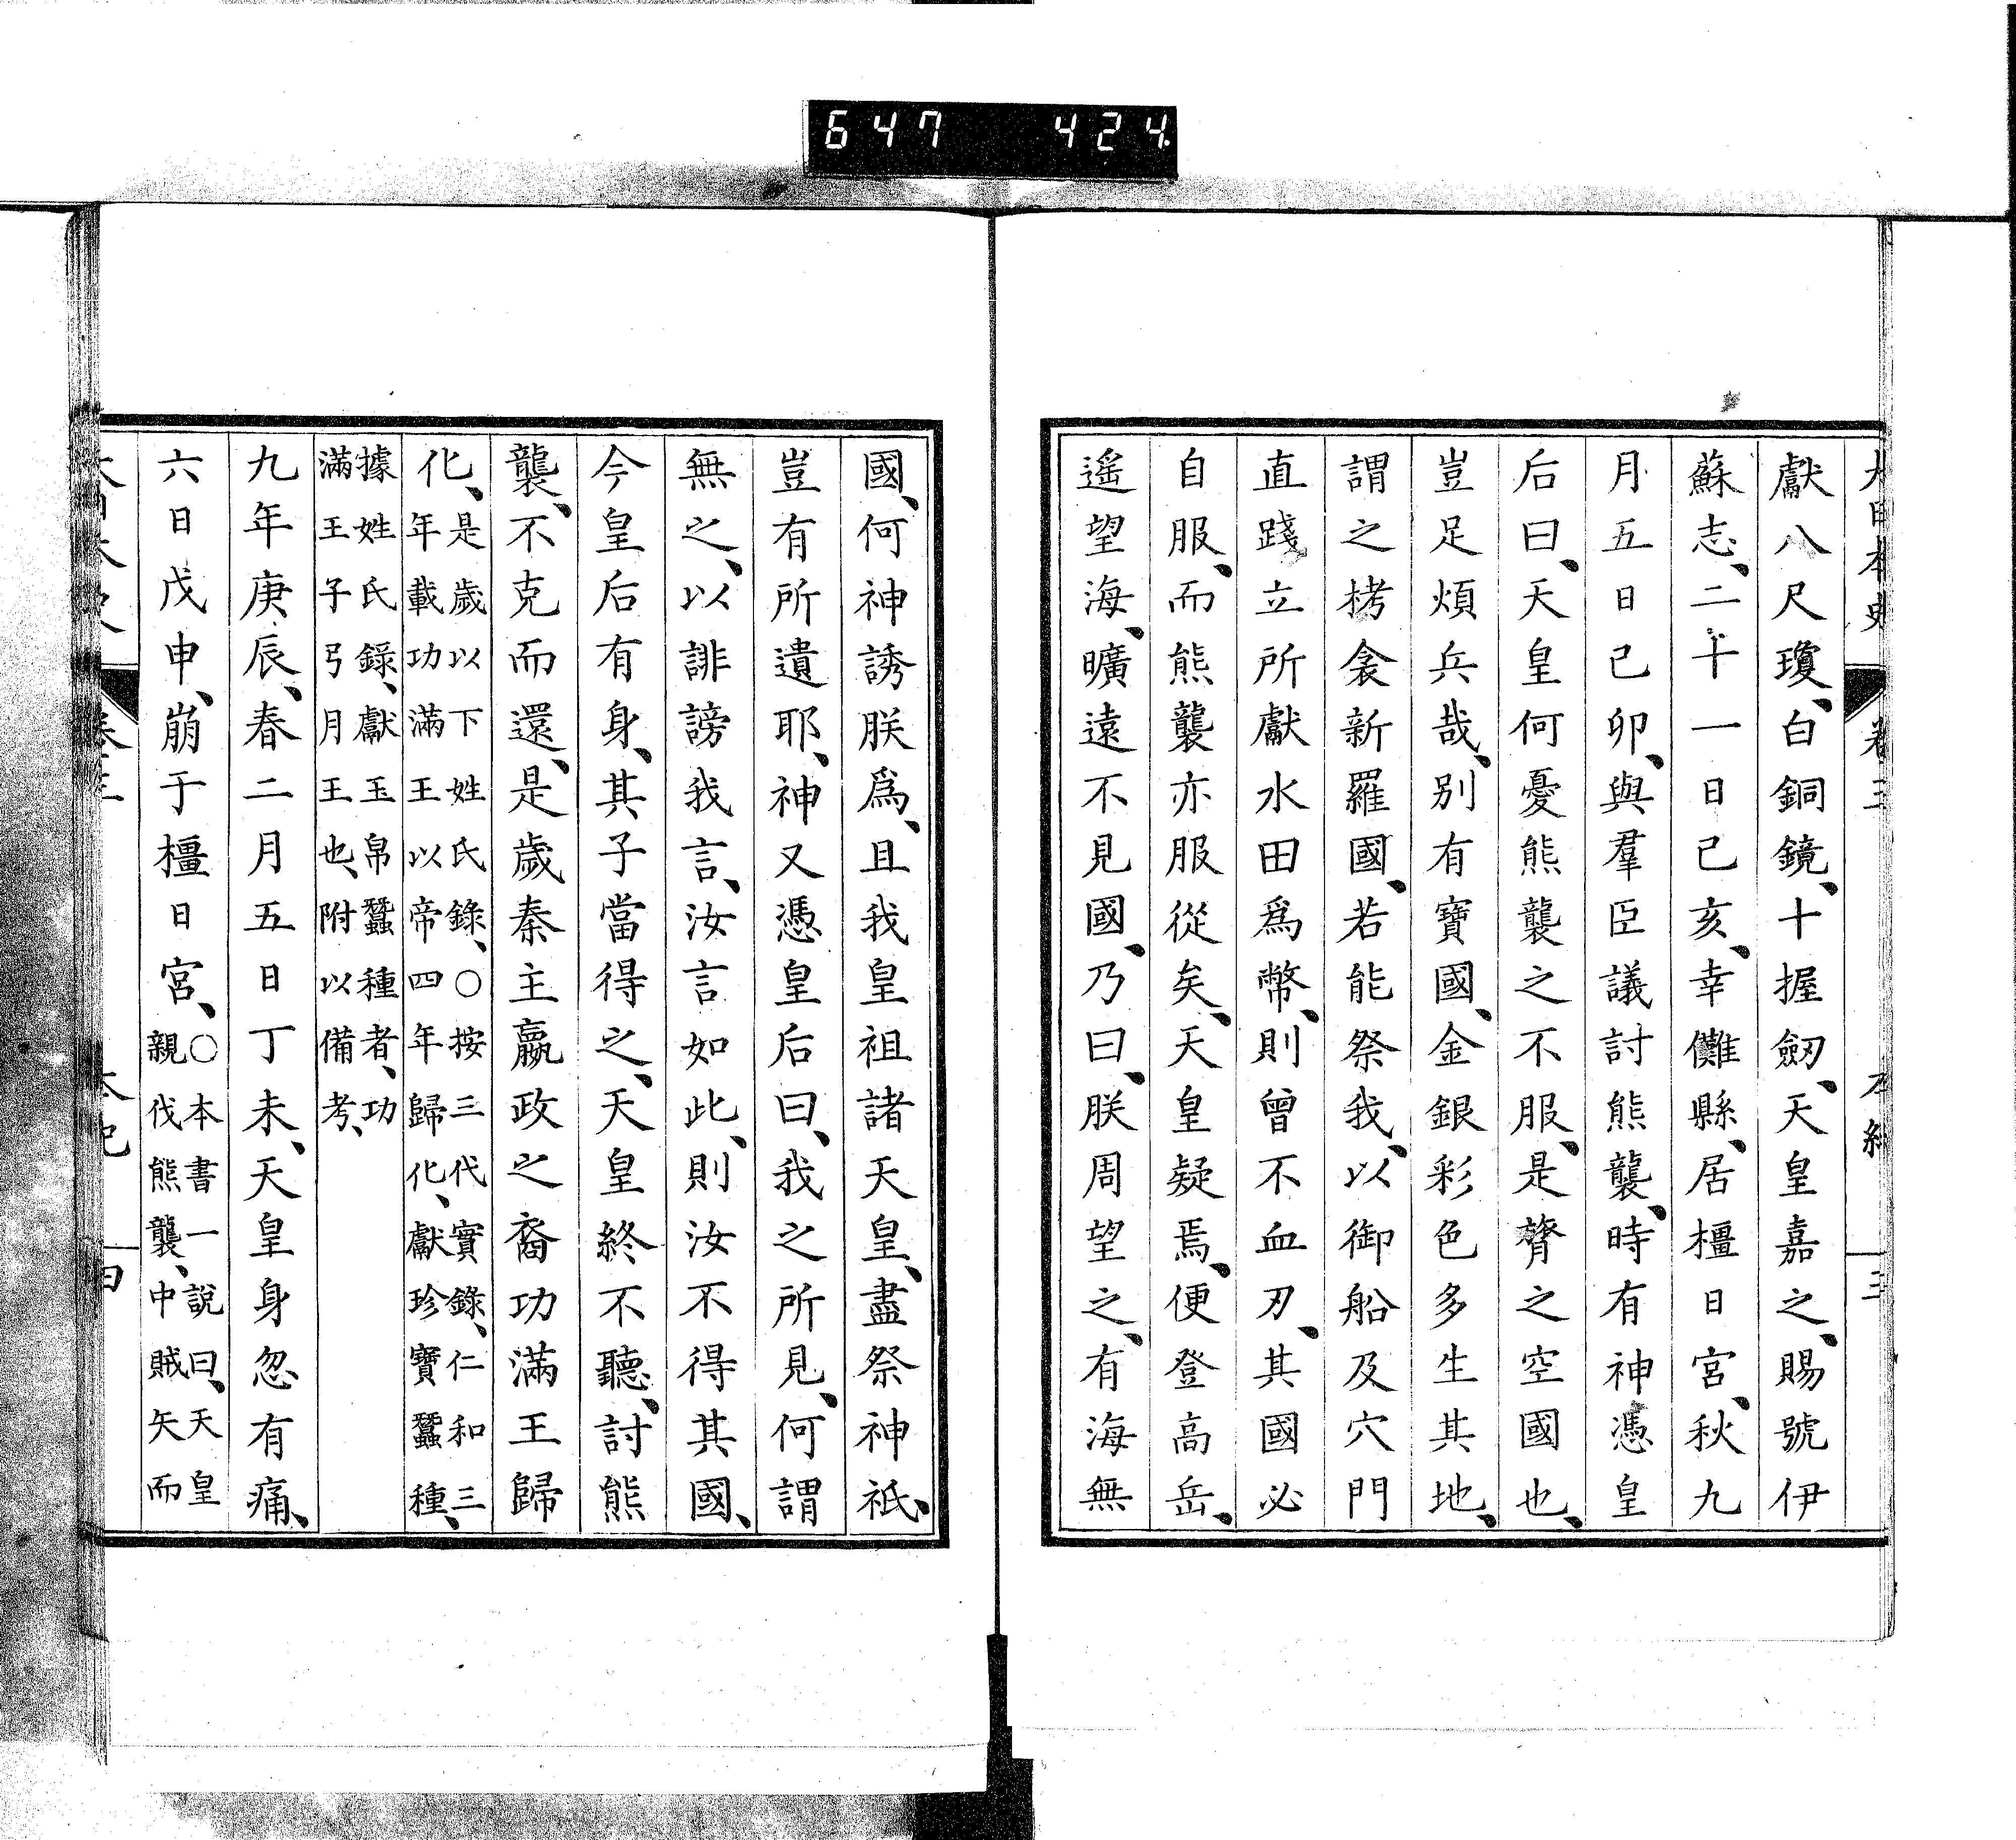 647 424
大日本史 卷三 本紀 三
獻八尺瓊、白銅鏡、十握劒、天皇嘉之、賜號伊
蘇志、二十一日己亥、幸儺縣、居橿日宮、秋九
月五日己卯、與羣臣議討熊襲、時有神憑皇
后曰、天皇何憂熊襲之不服、是膂之空國也、
豈足煩兵哉、別有寶國、金銀彩色多生其地、
謂之栲衾新羅國、若能祭我、以御船及穴門
直踐立所獻水田爲幣、則曾不血刃、其國必
自服、而熊襲亦服從矣、天皇疑焉、便登高岳、
遙望海、曠遠不見國、乃曰、朕周望之、有海無
國、何神誘朕爲、且我皇祖諸天皇、盡祭神祇、
豈有所遺耶、神又憑皇后曰、我之所見、何謂
無之、以誹謗我言、汝言如此、則汝不得其國、
今皇后有身、其子當得之、天皇終不聽、討熊
襲、不克而還、是歲秦主嬴政之裔功滿王歸
化、是歲以下姓氏錄、○按三代實錄、仁和三
年載功滿王以帝四年歸化、獻珍寶蠶種、
據姓氏錄、獻玉帛蠶種者、功
滿王子弓月王也、附以備考、
九年庚辰、春二月五日丁未、天皇身忽有痛、
六日戊申、崩于橿日宮、○本書一說曰、天皇
親伐熊襲、中賊矢而
大日本史 卷三 本紀 四